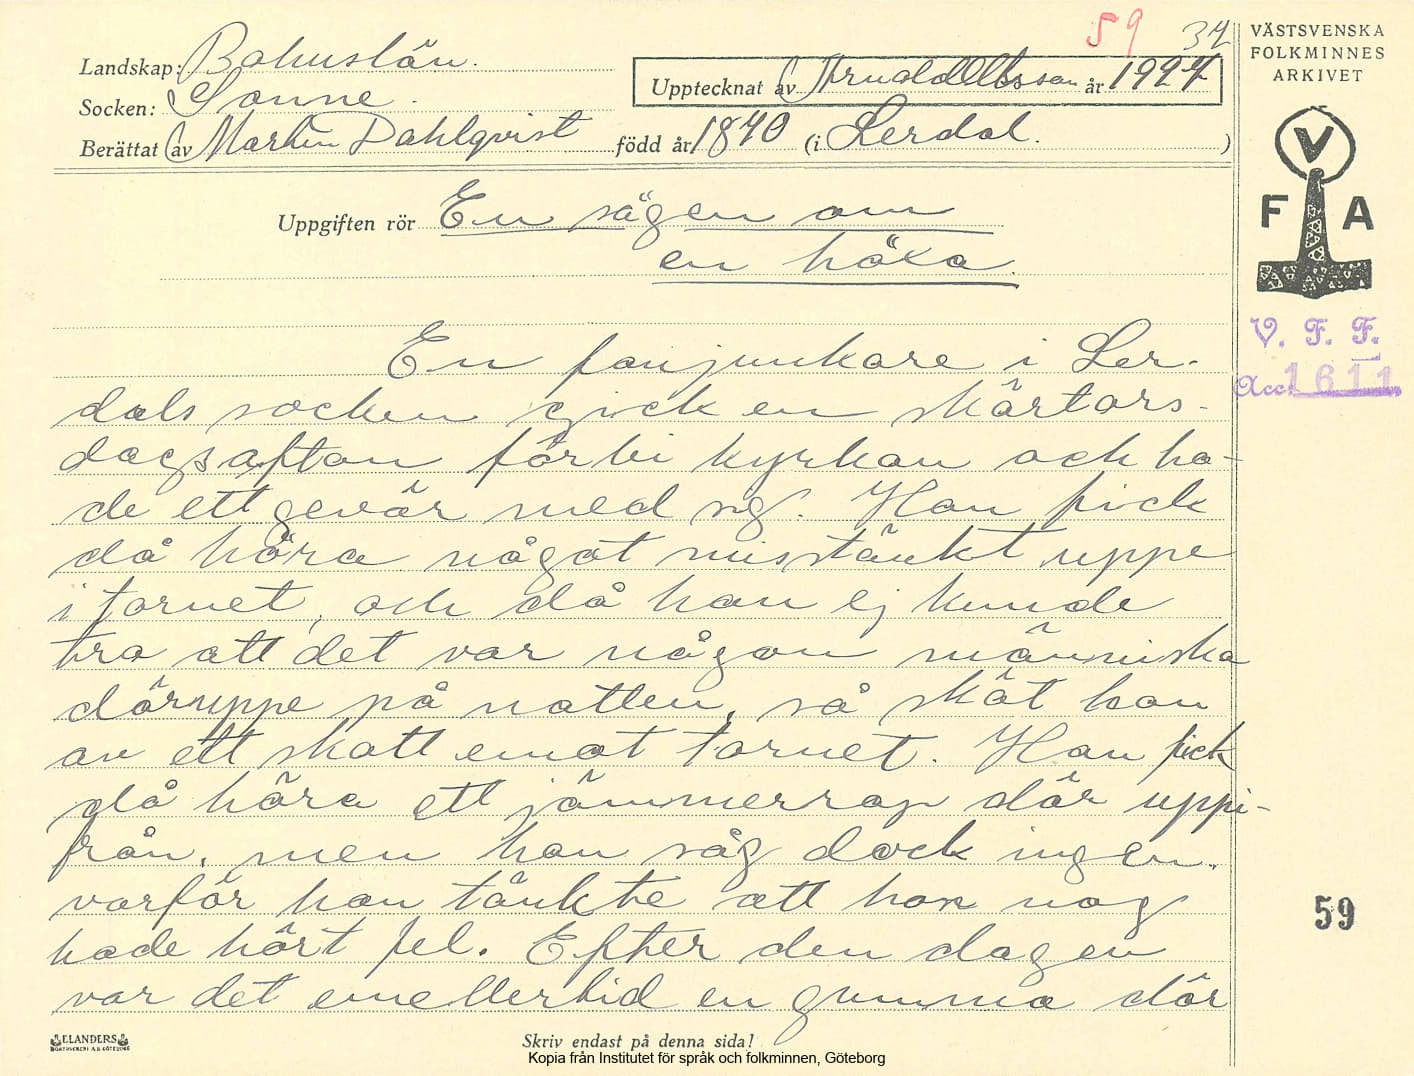 59 34
VÄSTSVENSKA
FOLKMINNES
ARKIVET
Landskap: Bohuslän.
Upptecknat av Arnold Olsson år 1927
Socken: Sanne.
Berättat av Martin Dahlqvist född år 1840 (i Lerdal. )
V
F A
Uppgiften rör En sägen om
en häxa.
V. F. F.
Acc. 1611
En fanjunkare i Ler-
dals socken gick en skärtors-
dagsafton förbi kyrkan och ha-
de ett gevär med sig. Han fick
då höra något misstänkt uppe
i tornet, och då han ej kunde
tro att det var någon människa
däruppe på natten, så sköt han
av ett skott emot tornet. Han fick
då höra ett jämmerrop där uppi-
från, men han såg dock ingen,
varför han tänkte att han nog
hade hört fel. Efter den dagen
var det emellertid en gumma där
59
ELANDERS
BOKTRYCKERI A.B. GÖTEBORG
Skriv endast på denna sida!
Kopia från Institutet för språk och folkminnen, Göteborg